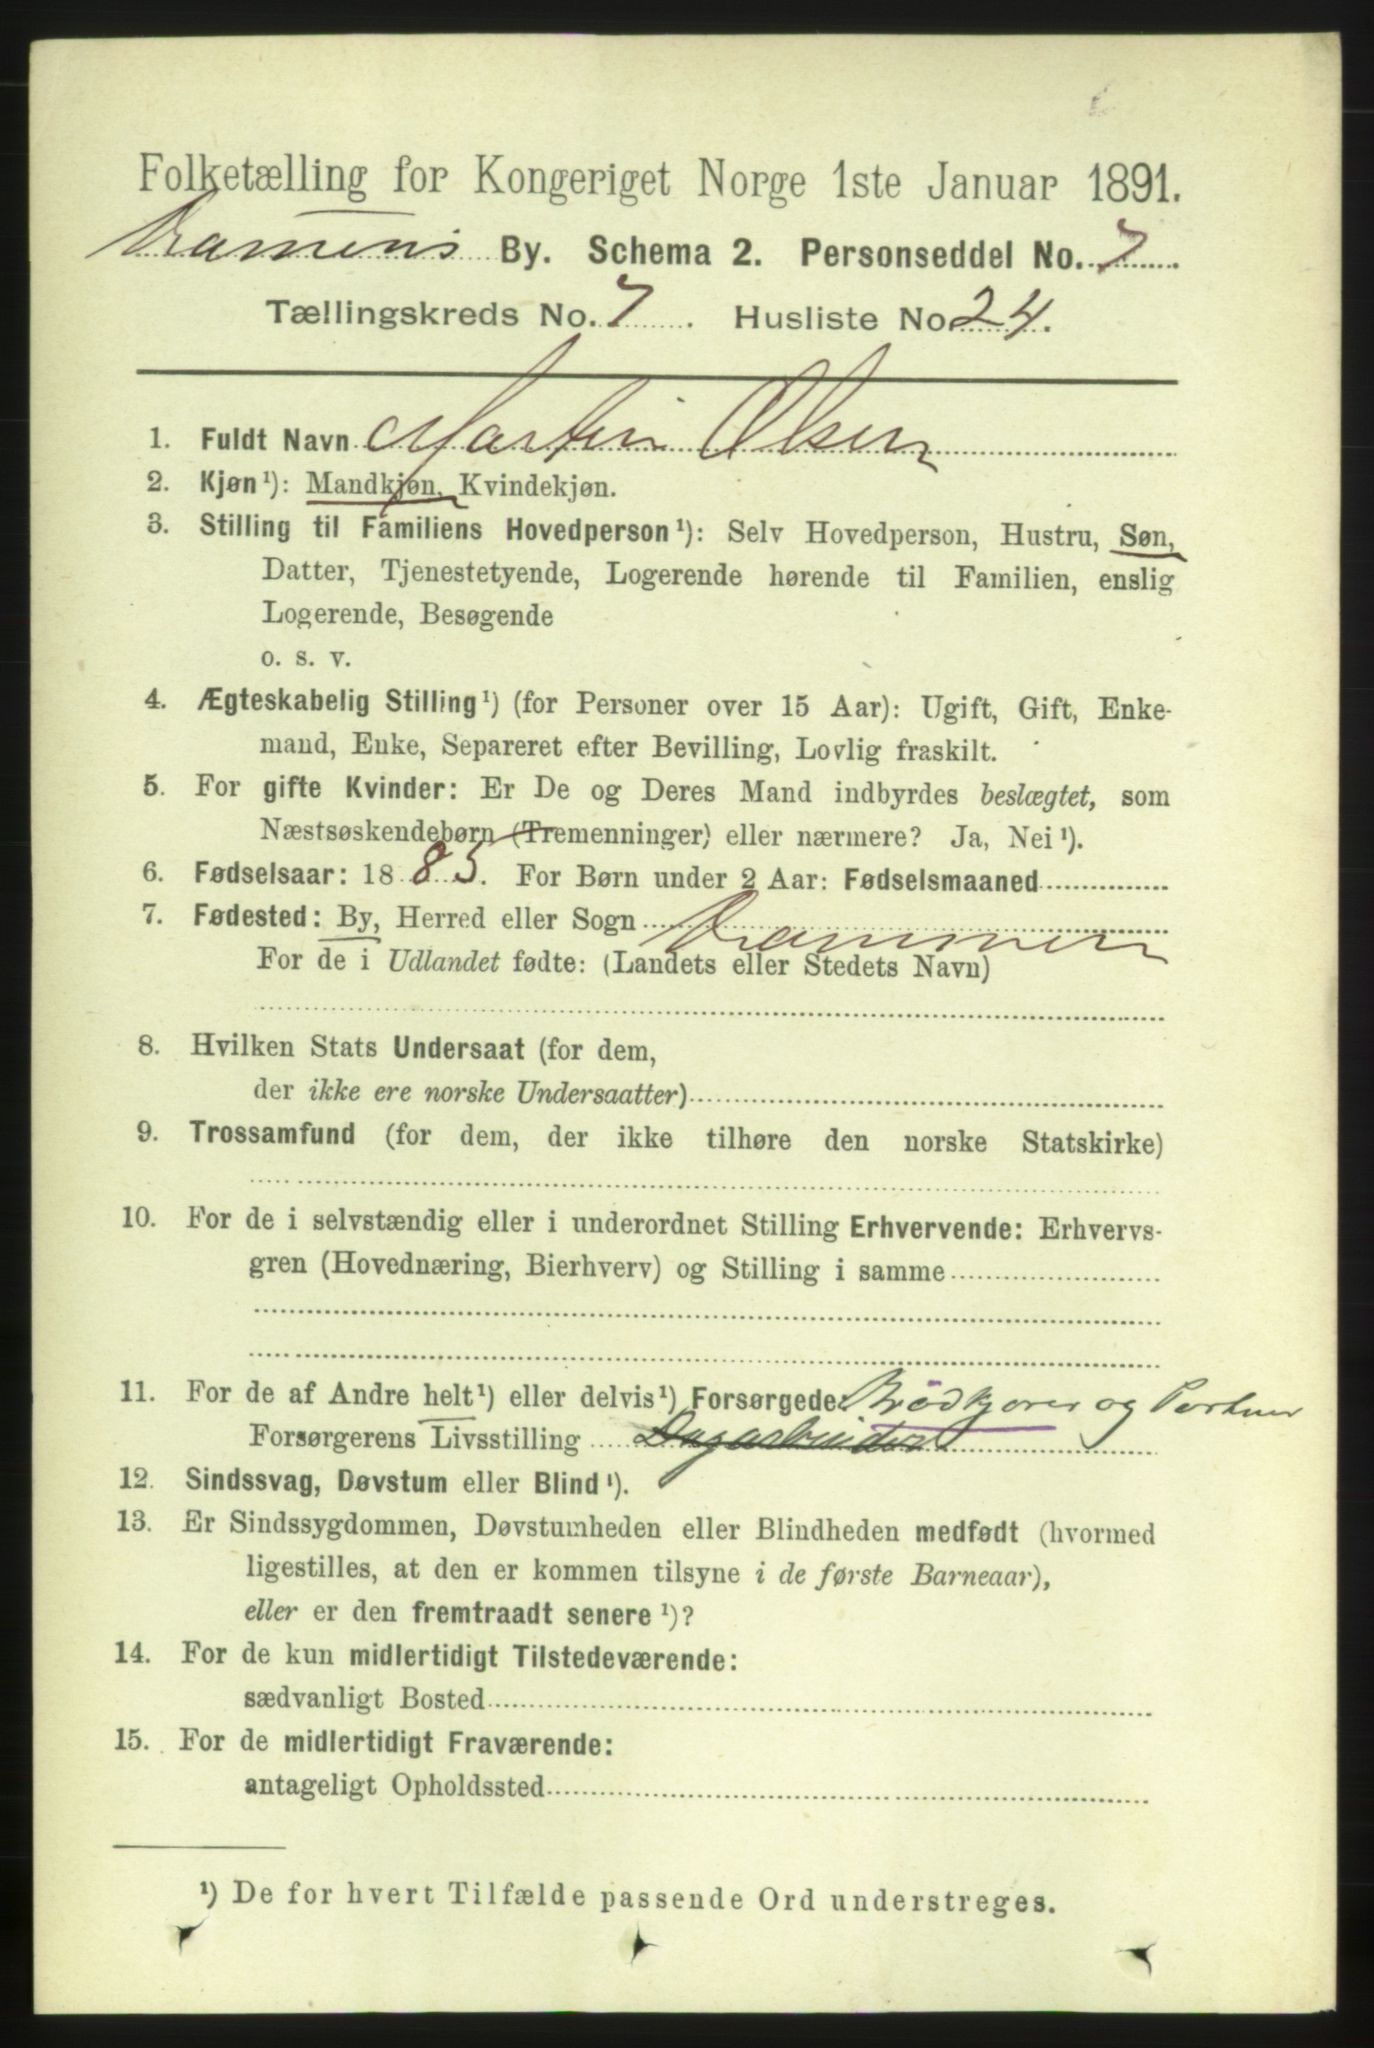 Folketælling for Kongeriget Norge 1ste Januar 1891.
Drammens By. Schema 2. Personseddel No. 7
Tællingskreds No. 7. Husliste No 24.
1. Fuldt Navn Martin Olsen
2. Kjøn¹): Mandkjøn, Kvindekjøn.
3. Stilling til Familiens Hovedperson¹): Selv Hovedperson, Hustru, Søn,
Datter, Tjenestetyende, Logerende hørende til Familien, enslig
Logerende, Besøgende
o. s. v.
4. Ægteskabelig Stilling¹) (for Personer over 15 Aar): Ugift, Gift, Enke-
mand, Enke, Separeret efter Bevilling, Lovlig fraskilt.
5. For gifte Kvinder: Er De og Deres Mand indbyrdes beslægtet, som
Næstsøskendebørn (Tremenninger) eller nærmere? Ja, Nei¹).
6. Fødselsaar: 1885. For Børn under 2 Aar: Fødselsmaaned
7. Fødested: By, Herred eller Sogn Drammen
For de i Udlandet fødte: (Landets eller Stedets Navn)
8. Hvilken Stats Undersaat (for dem,
der ikke ere norske Undersaatter)
9. Trossamfund (for dem, der ikke tilhøre den norske Statskirke)
10. For de i selvstændig eller i underordnet Stilling Erhvervende: Erhvervs-
gren (Hovednæring, Bierhverv) og Stilling i samme
11. For de af Andre helt¹) eller delvis¹) Forsørgede Brödkjører og
Forsørgerens Livsstilling Dagarbeider
12. Sindssvag, Døvstum eller Blind¹).
13. Er Sindssygdommen, Døvstumheden eller Blindheden medfødt (hvormed
ligestilles, at den er kommen tilsyne i de første Barneaar),
eller er den fremtraadt senere¹)?
14. For de kun midlertidigt Tilstedeværende:
sædvanligt Bosted
15. For de midlertidigt Fraværende:
antageligt Opholdssted
¹) De for hvert Tilfælde passende Ord understreges.